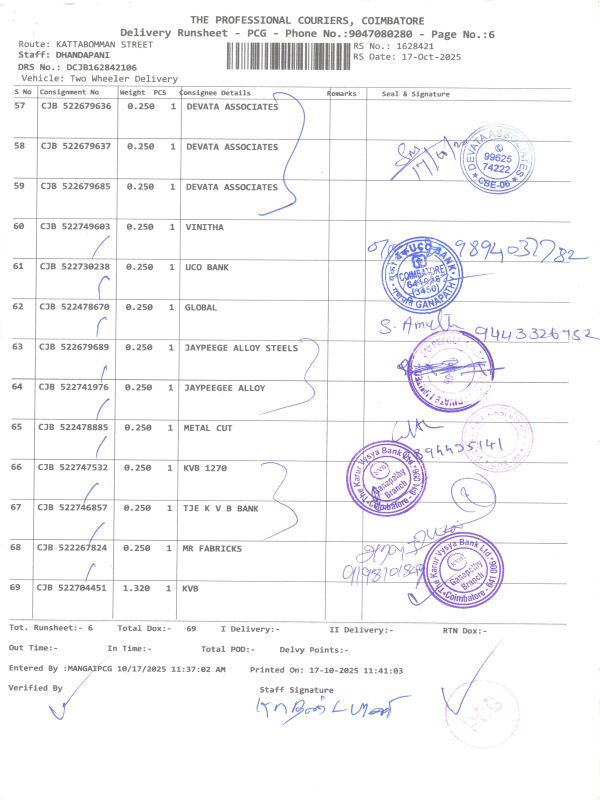 THE PROFESSIONAL COURIERS, COIMBATORE
Delivery Runsheet - PCG - Phone No.:9047080280 - Page No.:6
Route: KATTABOMMAN STREET RS No.: 1628421
Staff: DHANDAPANI RS Date: 17-Oct-2025
DRS No.: DCJB162842106
Vehicle: Two Wheeler Delivery
S No Consignment No Weight PCS Consignee Details Remarks Seal & Signature
57 CJB 522679636 0.250 1 DEVATA ASSOCIATES
58 CJB 522679637 0.250 1 DEVATA ASSOCIATES
DEVATA ASSOCIATES
99625
74222
* CBE-06 *
59 CJB 522679685 0.250 1 DEVATA ASSOCIATES
60 CJB 522749603 0.250 1 VINITHA
9894037782
61 CJB 522730238 0.250 1 UCO BANK
UCO BANK
COIMBATORE
GANAPATHY
62 CJB 522478670 0.250 1 GLOBAL
9443326752
63 CJB 522679689 0.250 1 JAYPEEGE ALLOY STEELS
64 CJB 522741976 0.250 1 JAYPEEGEE ALLOY
65 CJB 522478885 0.250 1 METAL CUT
66 CJB 522747532 0.250 1 KVB 1270
The Karur Vysya Bank Ltd
KVB
Ganapathy
Branch
*Coimbatore - 641 006*
67 CJB 522746857 0.250 1 TJE K V B BANK
68 CJB 522267824 0.250 1 MR FABRICKS
The Karur Vysya Bank Ltd
KVB
Ganapathy
Branch
*Coimbatore - 641 006*
69 CJB 522704451 1.320 1 KVB
Tot. Runsheet:- 6 Total Dox:- 69 I Delivery:- II Delivery:- RTN Dox:-
Out Time:- In Time:- Total POD:- Delvy Points:-
Entered By :MANGAIPCG 10/17/2025 11:37:02 AM Printed On: 17-10-2025 11:41:03
Verified By Staff Signature
PCG